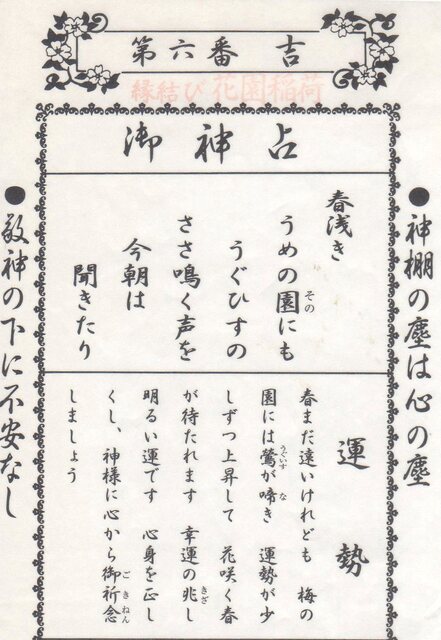 第六番 吉
縁結び 花園稲荷
御神占
●神棚の塵は心の塵
春浅き
うめの園にも
その
うぐひすの
ささ鳴く声を
今朝は
聞きたり
運勢
春まだ遠いけれども 梅の
園には鶯が啼き 運勢が少
うぐいす な
しずつ上昇して 花咲く春
が待たれます 幸運の兆し
きざ
明るい運です 心身を正し
くし、神様に心から御祈念
ごきねん
しましょう
●敬神の下に不安なし